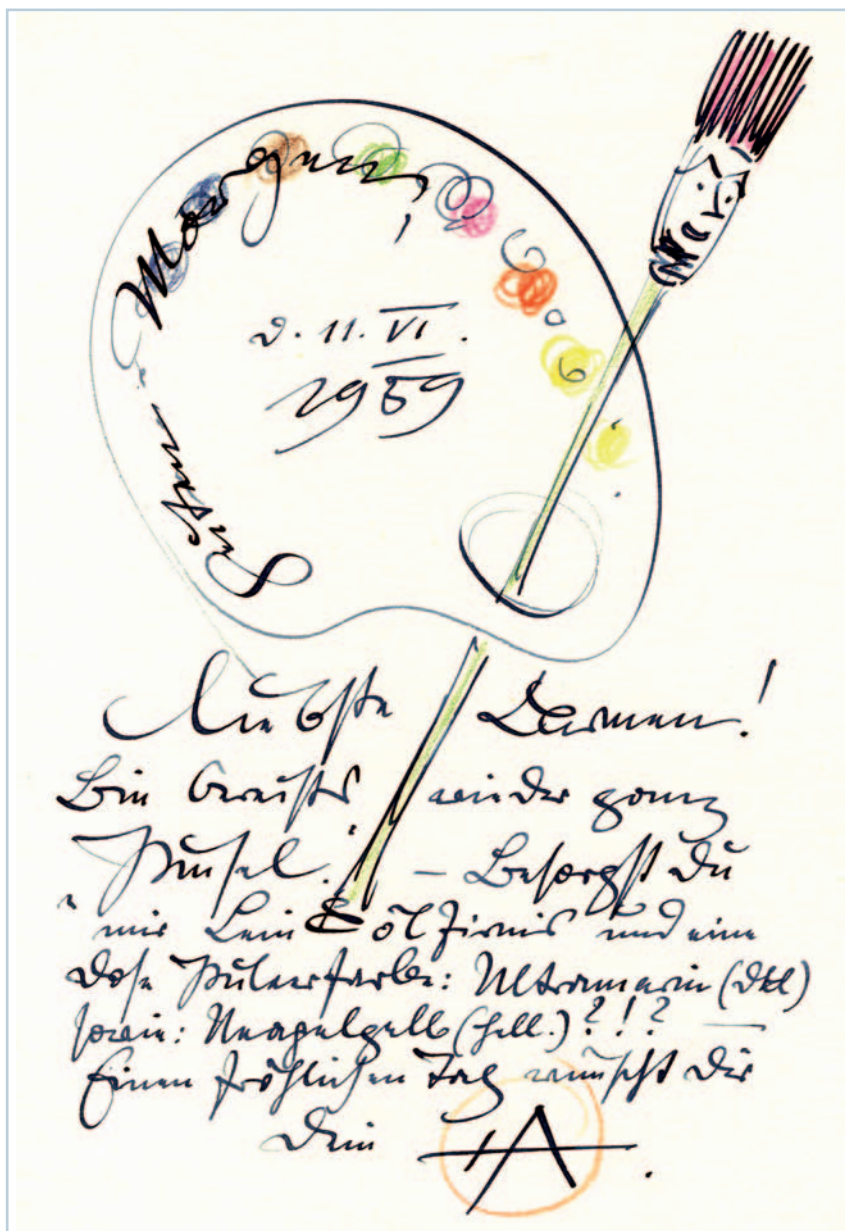 Guten Morgen,
d. 11. VI.
1959
Liebste Carmen!
Bin bereits wieder ganz
Pinsel! — Besorgst Du
mir Leinölfirnis und eine
Dose Pulverfarbe: Ultramarin (dkl)
sowie: Neapelgelb (hell.)?!? —
Einen fröhlichen Tag wünscht Dir
Dein HA.